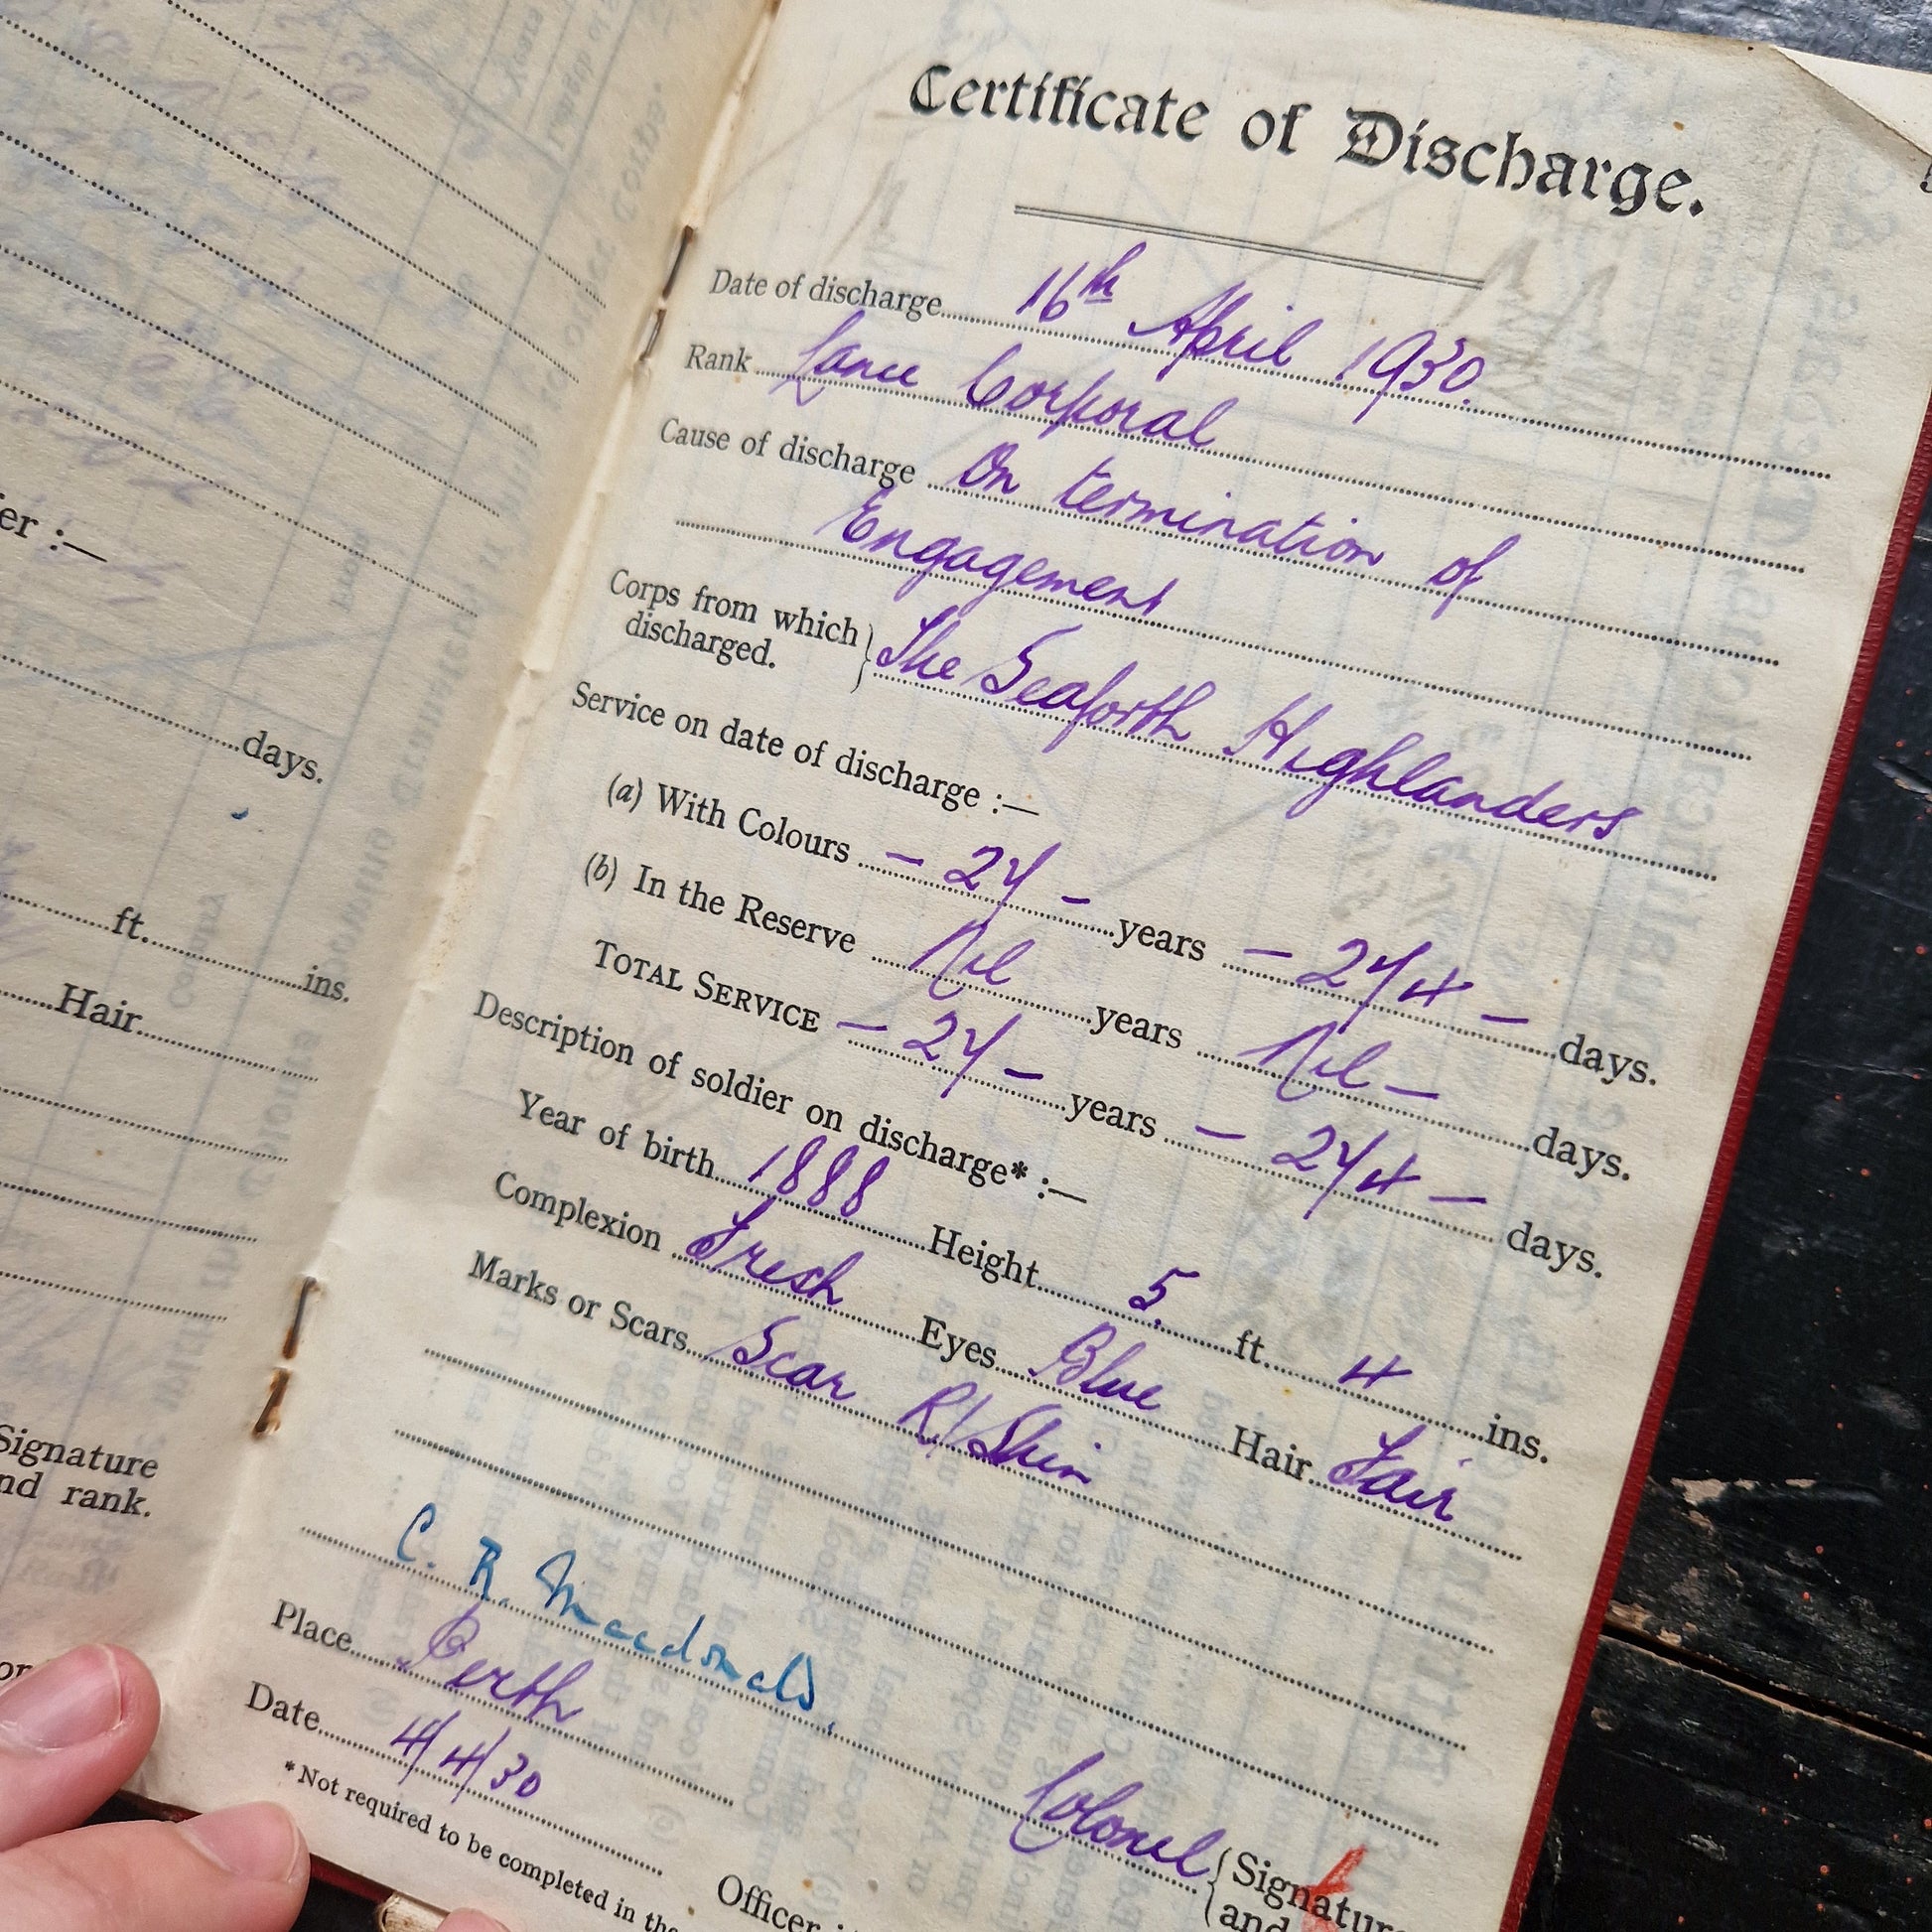 Certificate of Discharge.
Date of discharge 16th April 1930.
Rank Lance Corporal
Cause of discharge On termination of
Engagement
Corps from which
discharged. } The Seaforth Highlanders
Service on date of discharge :—
(a) With Colours – 27 – years – 274 – days.
(b) In the Reserve Nil years Nil – days.
TOTAL SERVICE – 27 – years – 274 – days.
Description of soldier on discharge* :—
Year of birth 1888 Height 5 ft. 4 ins.
Complexion Fresh Eyes Blue Hair Fair
Marks or Scars Scar R/Shin
C. R. Macdonald,
Colonel { Signature
and
Place Perth
Date 4/4/30
Officer
*Not required to be completed in the
er :—
days.
ft. ins.
Hair
Signature
nd rank.